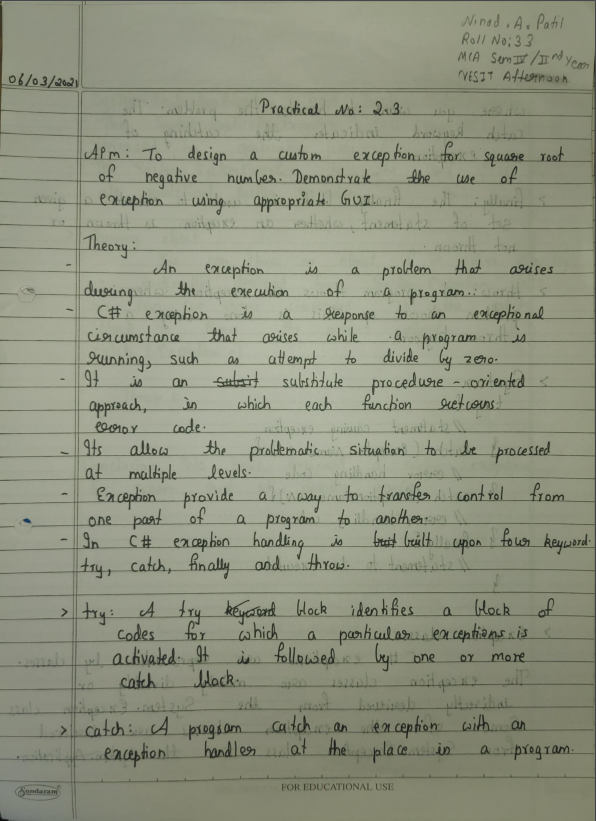 Ninad . A. Patil
Roll No: 33
MCA Sem IV / IInd Year
VESIT Afternoon
06/03/2021
Practical No: 2.3
Aim: To design a custom exception for square root
of negative number. Demonstrate the use of
exception using appropriate GUI
Theory:
- An exception is a problem that arises
during the execution of a program.
- C# exception is a response to an exceptional
circumstance that arises while a program is
running, such as attempt to divide by zero.
- It is an substitute procedure - oriented
approach, in which each function returns
error code.
- Its allow the problematic situation to be processed
at multiple levels.
- Exception provide a way to transfer control from
one part of a program to another.
- In C# exception handling is built upon four keyword.
try, catch, finally and throw.
> try: A try keyword block identifies a block of
codes for which a particular exceptions is
activated. It is followed by one or more
catch block.
> catch: A program catch an exception with an
exception handler at the place in a program.
Sundaram
FOR EDUCATIONAL USE